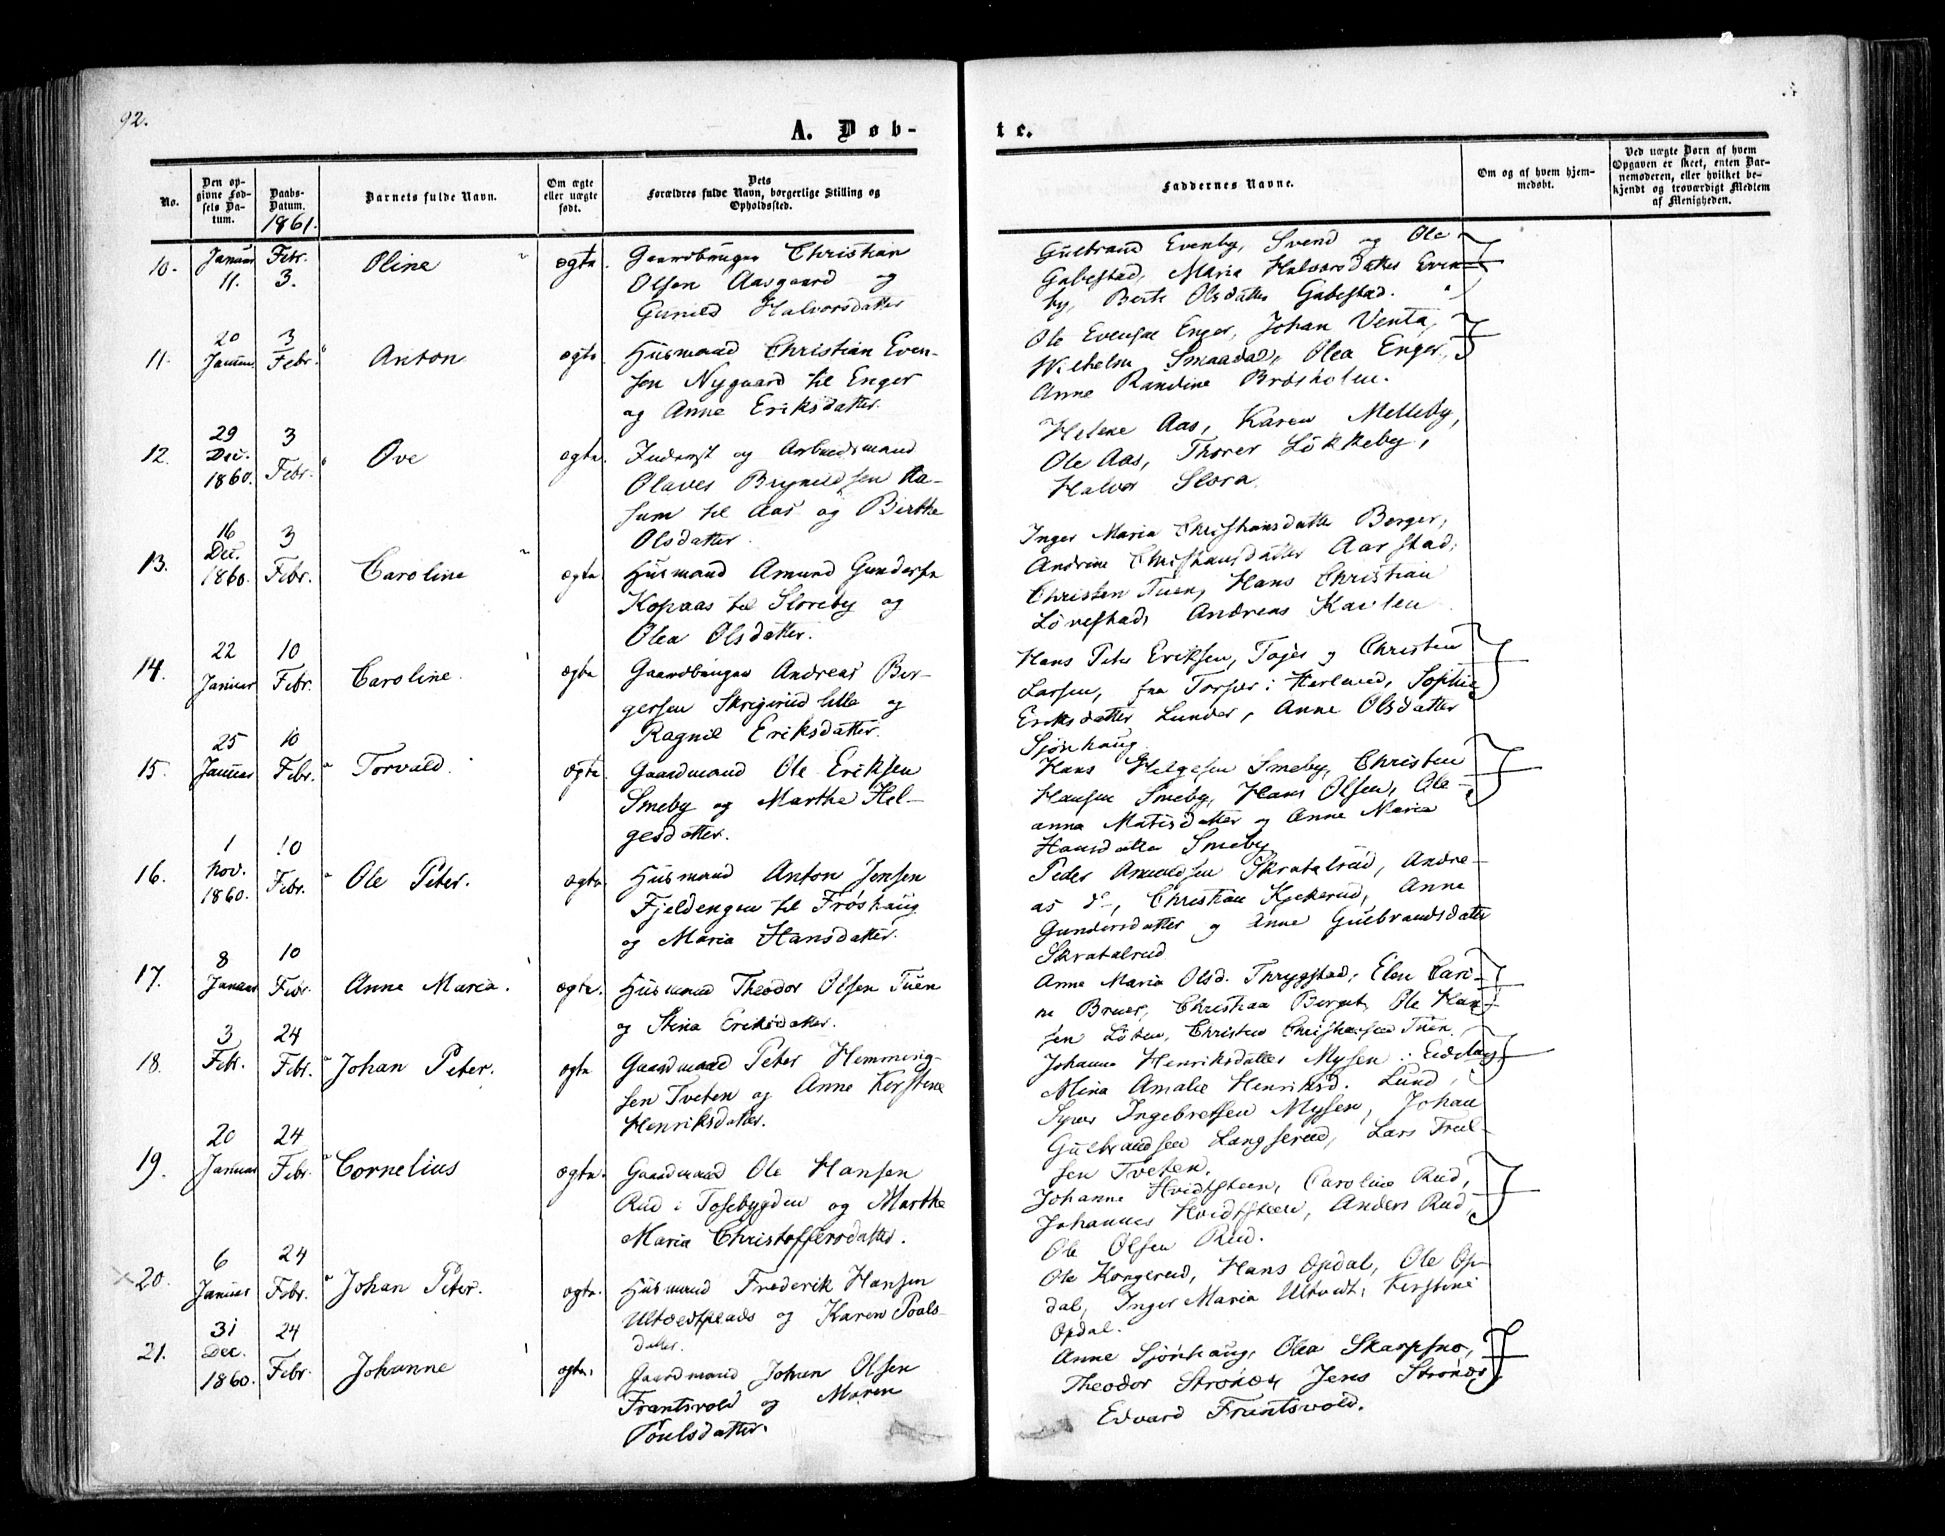 92.
A. Døb-
te.
No.
Den op-
givne Fød-
sels Da-
tum.
Daabs-
Datum.
1861.
Barnets fulde Navn.
Om ægte
eller uægte
født.
Dets
Forældres fulde Navn, borgerlige Stilling og
Opholdssted.
Faddernes Navne.
Om og af hvem hjem-
medøbt.
Ved uægte Børn af hvem
Opgaven er skeet, enten Bar-
nemoderen, eller hvilket be-
kjendt og troværdigt Medlem
af Menigheden.
10.
Januar
11.
Febr.
3.
Oline
ægte.
Gaardbruger Christian
Olsen Aasgaard og
Gunild Halvorsdatter
Gulbrand Evenby, Svend og Ole
Gabestad, Maria Halvorsdatter Even-
by, Berte Olsdatter Gabestad.
11.
20
Januar
3
Febr.
Anton
ægte
Husmand Christian Even-
sen Nygaard til Enger
og Anne Eriksdatter.
Ole Evensen Enger, Johan Venta,
Wilhelm Smaadal, Olea Enger,
Anne Randine Brøsholen.
12.
29
Dec.
1860.
3
Febr.
Ove
ægte.
Inderst og Arbeidsmand
Olaves Brynildsen Aa-
sum til Aas og Birthe
Olsdatter.
Helene Aas, Karen Melleby,
Ole Aas, Thorer Løkkeby,
Halvor Slora.
13.
16
Dec.
1860.
3
Febr.
Caroline
ægte.
Husmand Amund Gundersen
Kopaas til Sloreby og
Olea Olsdatter.
Inger Maria Christiansdatter Berger,
Andrine Christiansdatter Aarstad,
Christen Tuen, Hans Christian
Løvestad, Andreas Kavlen
14.
22
Januar
10
Febr.
Caroline.
ægte
Gaardbruger Andreas Bir-
gersen Skrigerud lille og
Ragnil Eriksdatter.
Hans Peter Eriksen, Tojer og Christen
Larsen, fra Torper i Herland, Sophie
Eriksdatter Lunder, Anne Olsdatter
Sjønhaug
15.
25
Januar
10
Febr.
Torvald.
ægte.
Gaardmand Ole Eriksen
Smeby og Marthe Hel-
gesdatter.
Hans Helgesen Smeby, Christen
Hansen Smeby, Hans Olsen, Ole-
anna Matisdatter og Anne Maria
Hansdatter Smeby
16.
1
Nov.
1860.
10
Febr.
Ole Peter.
ægte.
Husmand Anton Jensen
Fjeldengen til Frøshaug
og Maria Hansdatter.
Peder Amundsen Skratalrud, Andre-
as do, Christian Kjekerud, Anne
Gundersdatter og Anne Gulbrandsdatter
Skratalrud
17.
8
Januar
10
Febr.
Anne Maria.
ægte.
Husmand Theodor Olsen Tuen
og Stina Eriksdatter.
Anne Maria Olsd. Thrygstad, Elen Cari-
ne Bruer, Christian Berget, Ole Han-
sen Løken, Christen Christensen Tuen.
18.
3
Febr.
24
Febr.
Johan Peter.
ægte
Gaardmand Peter Hemming-
sen Tveten og Anne Kirstine
Henriksdatter.
Johanne Henriksdatter Mysen i Eidsberg
Mina Amalie Henriksd. Lund,
Syver Ingebretsen Mysen, Johan
Gulbrandsen Langserud, Lars Truls-
sen Tveten.
19.
20
Januar
24
Febr.
Cornelius
ægte.
Gaardmand Ole Hansen
Rud i Tosebygden og Marthe
Maria Christoffersdatter.
Johanne Hvidtsteen, Caroline Rud,
Johannes Hvidtsteen, Anders Rud,
Ole Olsen Rud.
20.
6
Januar
24
Febr.
Johan Peter.
ægte.
Husmand Frederik Hansen
Ultvedtplads og Karen Poals-
datter.
Ole Kongerud, Hans Opdal, Ole Op-
dal, Inger Maria Ultvedt, Kirstine
Opdal.
21.
31
Dec.
1860.
24
Febr.
Johanne
ægte.
Gaardmand Johan Olsen
Frantsvold og Maren
Poulsdatter.
Anne Sjønhaug, Olea Skarpsno,
Theodor Strønes, Jens Strønes,
Edvard Frantsvold.